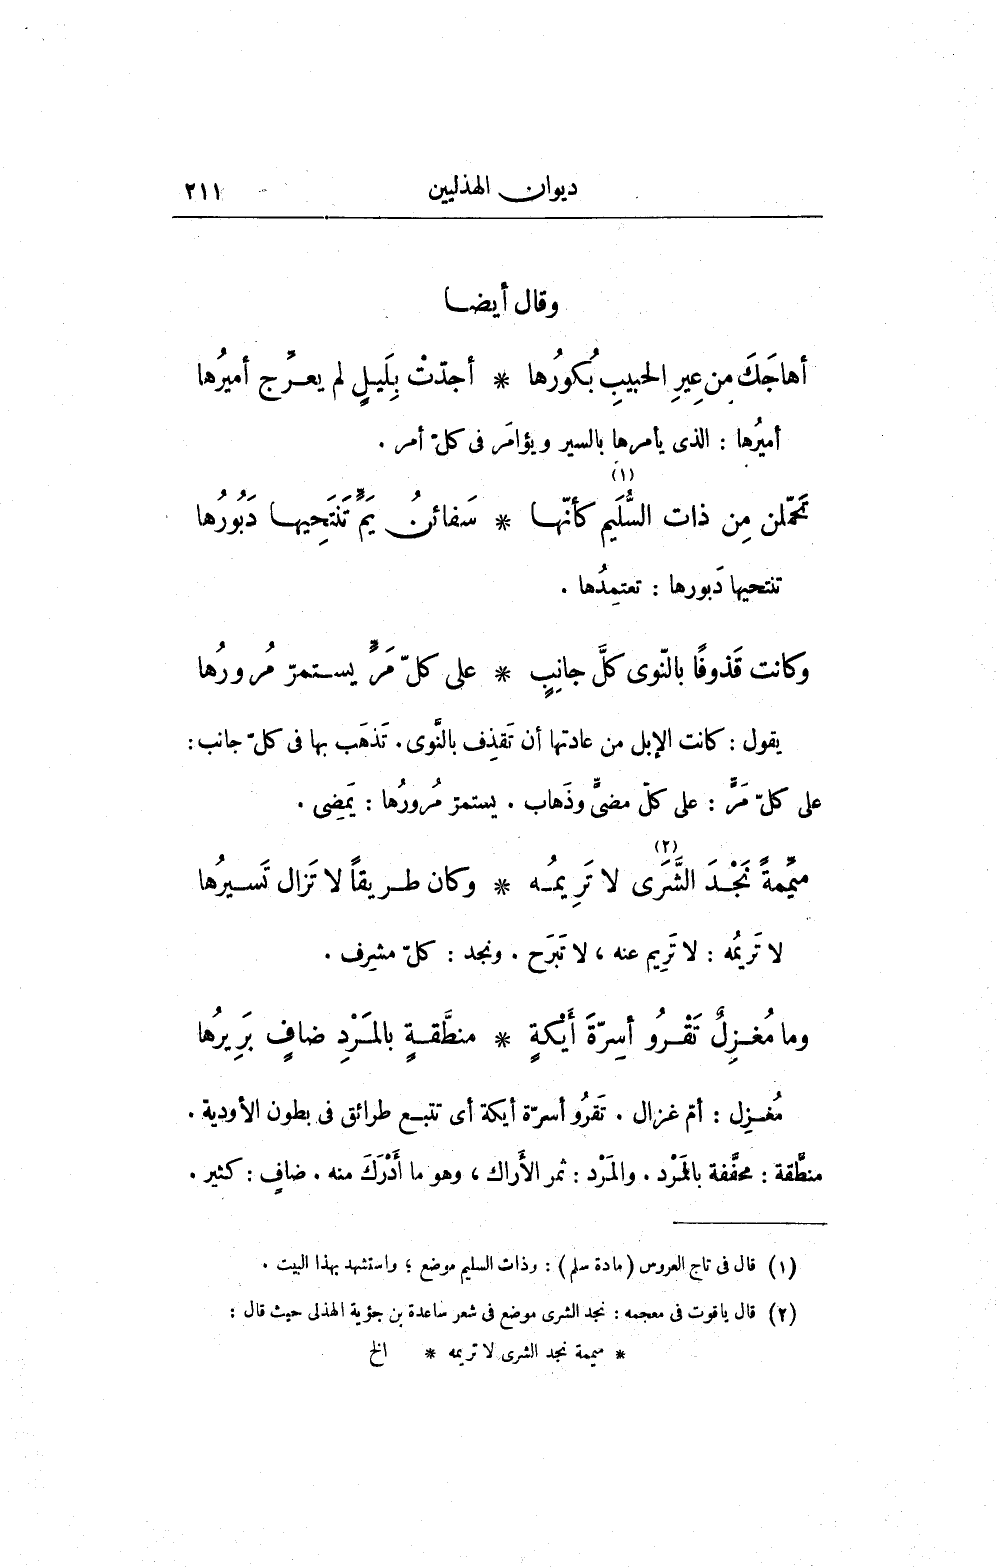 ديوان الهذليين ٢١١
وقال أيضا
أهاجَكَ مِن عِيرِ الحبيبِ بُكورُها * أجدّتْ بِلَيلٍ لم يعرِّج أميرُها
أميرُها : الذى يأمرها بالسير ويؤامَر فى كلّ أمر .
تحمّلن مِن ذات السُّلَيم كأنّها (١) * سَفائنُ يَمٍّ تَنْتَحِيها دَبُورُها
تنتحيها دَبورها : تعتمِدُها .
وكانت قَذوفًا بالنّوى كلَّ جانِبٍ * على كلّ مَرٍّ يستمرّ مُرورُها
يقول : كانت الإبل من عادتها أن تَقذِف بالنَّوى . تَذهَب بها فى كلّ جانب :
على كلّ مَرٍّ : على كلّ مضىٍّ وذَهاب . يستمرّ مُرورُها : يَمضِى .
ميمِّمةً نَجْدَ الشَّرَى لا تَرِيمُه (٢) * وكان طريقاً لا تَزال تَسيرُها
لا تَريمُه : لا تَرِيم عنه ، لا تَبَرَح . ونجد : كلّ مشرِف .
وما مُغزِلٌ تَقْرُو أسِرّةَ أَيْكةٍ * منطَّقةٍ بالمَرْدِ ضافٍ بَرِيرُها
مُغزِل : أمّ غزال . تَقرُو أسرّة أيكة أى تتبع طرائق فى بطون الأودية .
منطَّقة : محفَّفة بالمَرْد . والمَرْد : ثمر الأَراك ، وهو ما أَدْرَكَ منه . ضافٍ : كثير .
(١) قال فى تاج العروس (مادة سلم) : وذات السليم موضع ؛ واستشهد بهذا البيت .
(٢) قال ياقوت فى معجمه : نجد الشرى موضع فى شعر ساعدة بن جؤية الهذلى حيث قال :
* ميممة نجد الشرى لا تريمه * الخ